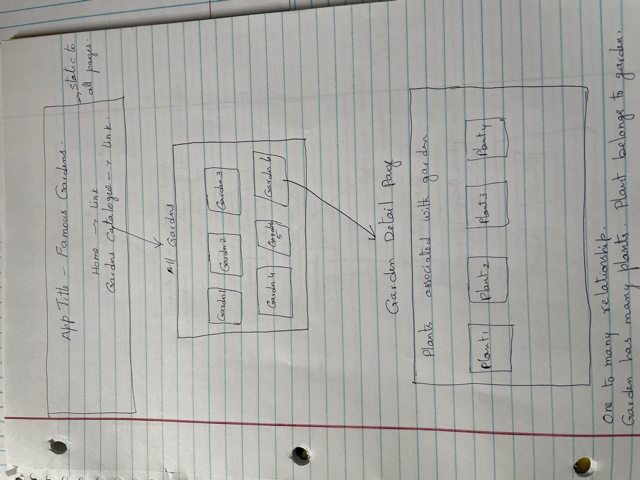 App Title - Famous Gardens.
Home → Link
Gardns Catalogue → Link.
static to
all pages.
All Gardns
Garden1 Garden2 Garden3
Garden 4 Garden 5 Garden 6
Garden Detail Page
Plants associated with garden
Plant1 Plant2 Plant3 Plant4
One to many relationship.
Garden has many plants. Plant belongs to garden.